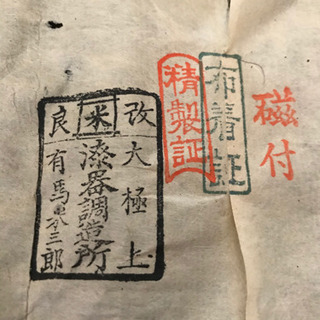 磁付
布着証
精製証
改大極上
米
漆器調造所
良有馬
三郎